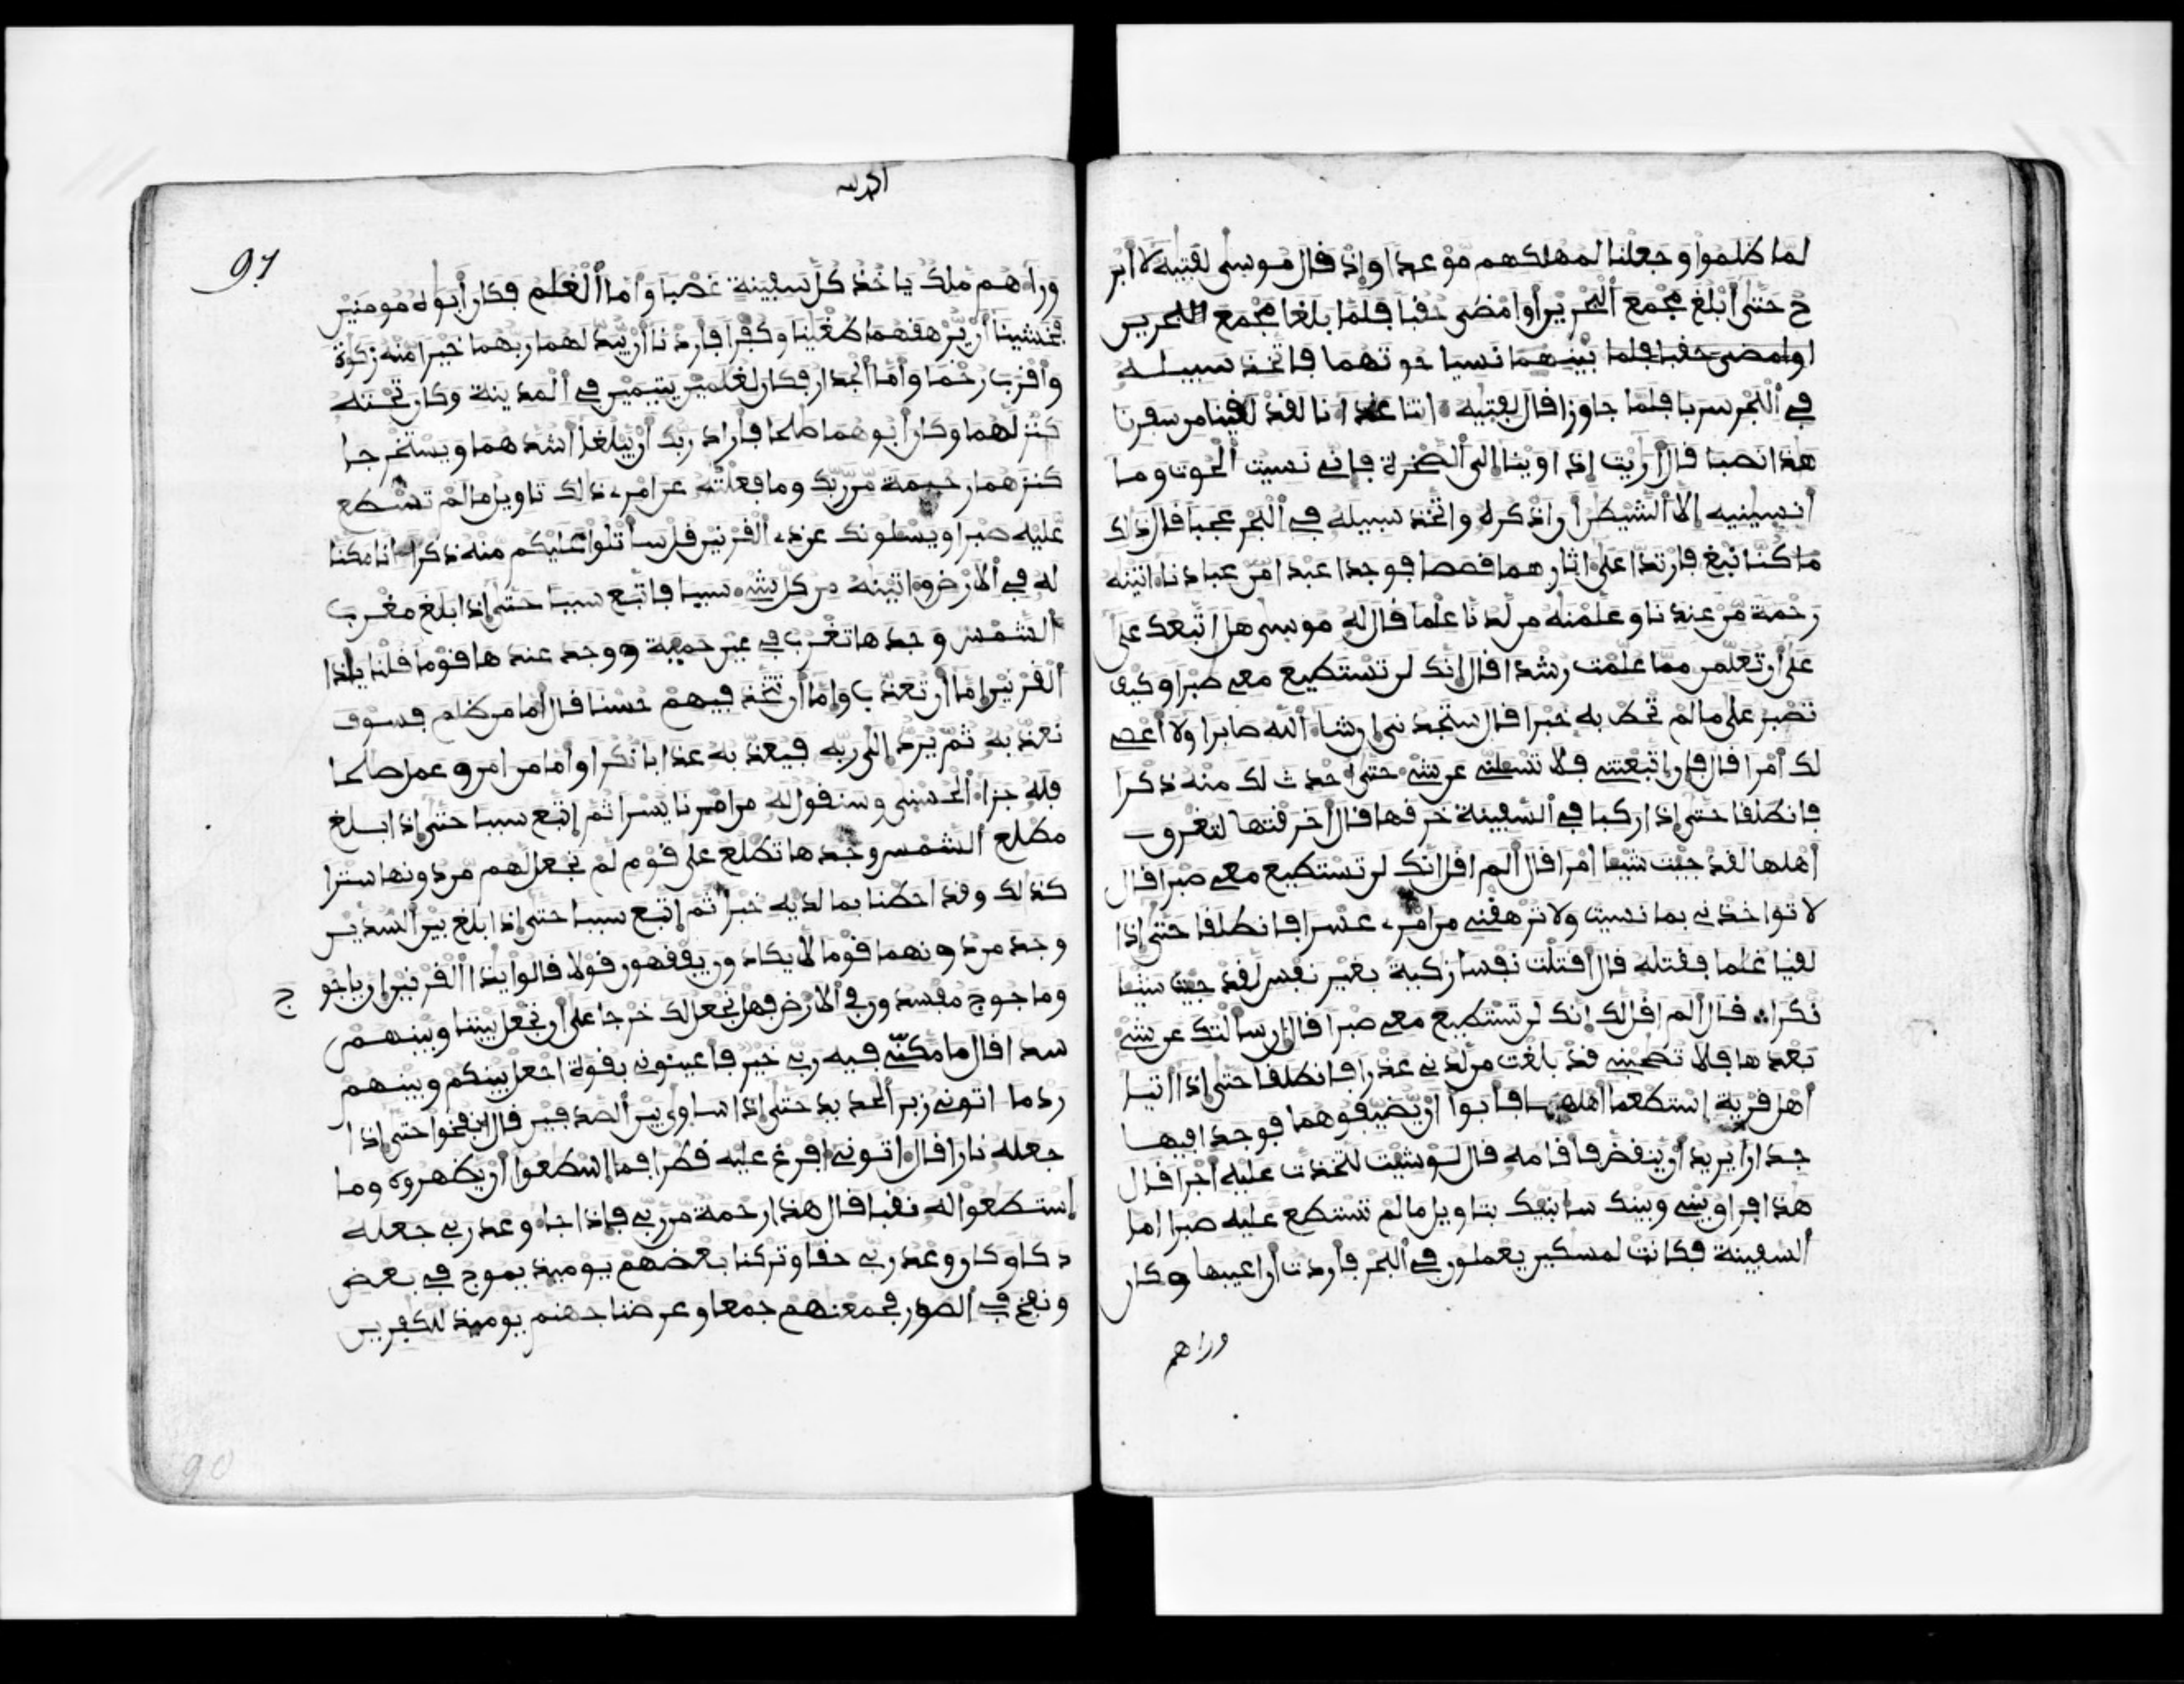 لما ظلموا وجعلنا لمهلكهم موعدا وإذ قال موسى لفتيه لا أبر
ح حتى أبلغ مجمع البحرين أوا مضى حقبا فلما بلغا مجمع البحرين
اوامضى حقبا فلما بينهما نسيا حوتهما فاتخذ سبيله
في البحر سربا فلما جاوزا قال لفتيه اتنا غدانا لقد لقينا من سفرنا
هذا نصبا قال أريت إذ اوينا إلى الصخرة فإني نسيت الحوت وما
أنسينيه إلا الشيطن أن اذكره واتخذ سبيله في البحر عجبا قال ذلك
ما كنا نبغ فارتدا على اثارهما قصصا فوجدا عبدا من عبادنا اتينه
رحمة من عندنا وعلمنه من لدنا علما قال له موسى هل اتبعك على
على أن تعلمن مما علمت رشدا قال إنك لن تستطيع معي صبرا وكيف
تصبر على ما لم تحط به خبرا قال ستجدني إن شاء الله صابرا ولا أعصي
لك أمرا قال فإن اتبعتني فلا تسلني عن شيء حتى أحدث لك منه ذكرا
فانطلقا حتى إذا ركبا في السفينة خرقها قال أخرقتها لتغرق
أهلها لقد جيت شيئا إمرا قال ألم اقل انك لن تستطيع معي صبرا قال
لا تواخذني بما نسيت ولا ترهقني من امري عسرا فانطلقا حتى إذا
لقيا غلما فقتله قال أقتلت نفسا زكية بغير نفس لقد جيت شيئا
نكرا قال ألم اقل لك إنك لن تستطيع معي صبرا قال إن سالتك عن شيء
بعدها فلا تصحبني قد بلغت من لدني عذرا فانطلقا حتى إذا اتيا
أهل قرية استطعما أهلها فأبوا أن يضيفوهما فوجدا فيها
جدارا يريد أن ينقض فاقامه قال لو شيت لتخذت عليه أجرا قال
هذا فراق بيني وبينك سانبئك بتاويل ما لم تستطع عليه صبرا اما
السفينة فكانت لمسكين يعملون في البحر فأردت أن اعيبها وكان
وراهم
الحمد لله
91
وراءهم ملك ياخذ كل سفينة غصبا وأما الغلم فكان أبواه مومنين
فخشينا أن يرهقهما طغينا وكفرا فاردنا أن يبدلهما ربهما خيرا منه زكوة
وأقرب رحما وأما الجدار فكان لغلمين يتيمين في المدينة وكان تحته
كنز لهما وكان أبوهما صلحا فأراد ربك أن يبلغا أشدهما ويستخرجا
كنزهما رحمة من ربك وما فعلته عن امري ذلك تاويل ما لم تسطع
عليه صبرا ويسلونك عن ذي القرنين قل ساتلوا عليكم منه ذكرا انا مكنا
له في الأرض واتينه من كل شيء سببا فاتبع سببا حتى إذا بلغ مغرب
الشمس وجدها تغرب في عين حمية ووجد عندها قوما قلنا يذا
القرنين إما أن تعذب وإما أن تتخذ فيهم حسنا قال أما من ظلم فسوف
نعذبه ثم يرد إلى ربه فيعذبه عذابا نكرا وأما من امن وعمل صلحا
فله جزاء الحسنى وسنقول له من امرنا يسرا ثم اتبع سببا حتى إذا بلغ
مطلع الشمس وجدها تطلع على قوم لم نجعل لهم من دونها سترا
كذلك وقد احطنا بما لديه خبرا ثم اتبع سببا حتى إذا بلغ بين السدين
وجد من دونهما قوما لا يكادون يفقهون قولا قالوا يذا القرنين إن ياجو
ج
وماجوج مفسدون في الأرض فهل نجعل لك خرجا على أن تجعل بيننا وبينهم
سدا قال ما مكني فيه ربي خير فأعينوني بقوة اجعل بينكم وبينهم
ردما اتوني زبر الحديد حتى إذا ساوى بين الصدفين قال انفخوا حتى إذا
جعله نارا قال اتوني افرغ عليه قطرا فما اسطعوا أن يظهروه وما
استطعوا له نقبا قال هذا رحمة من ربي فإذا جاء وعد ربي جعله
دكا وكان وعد ربي حقا وتركنا بعضهم يوميذ يموج في بعض
ونفخ في الصور فجمعنهم جمعا وعرضنا جهنم يوميذ للكفرين
90